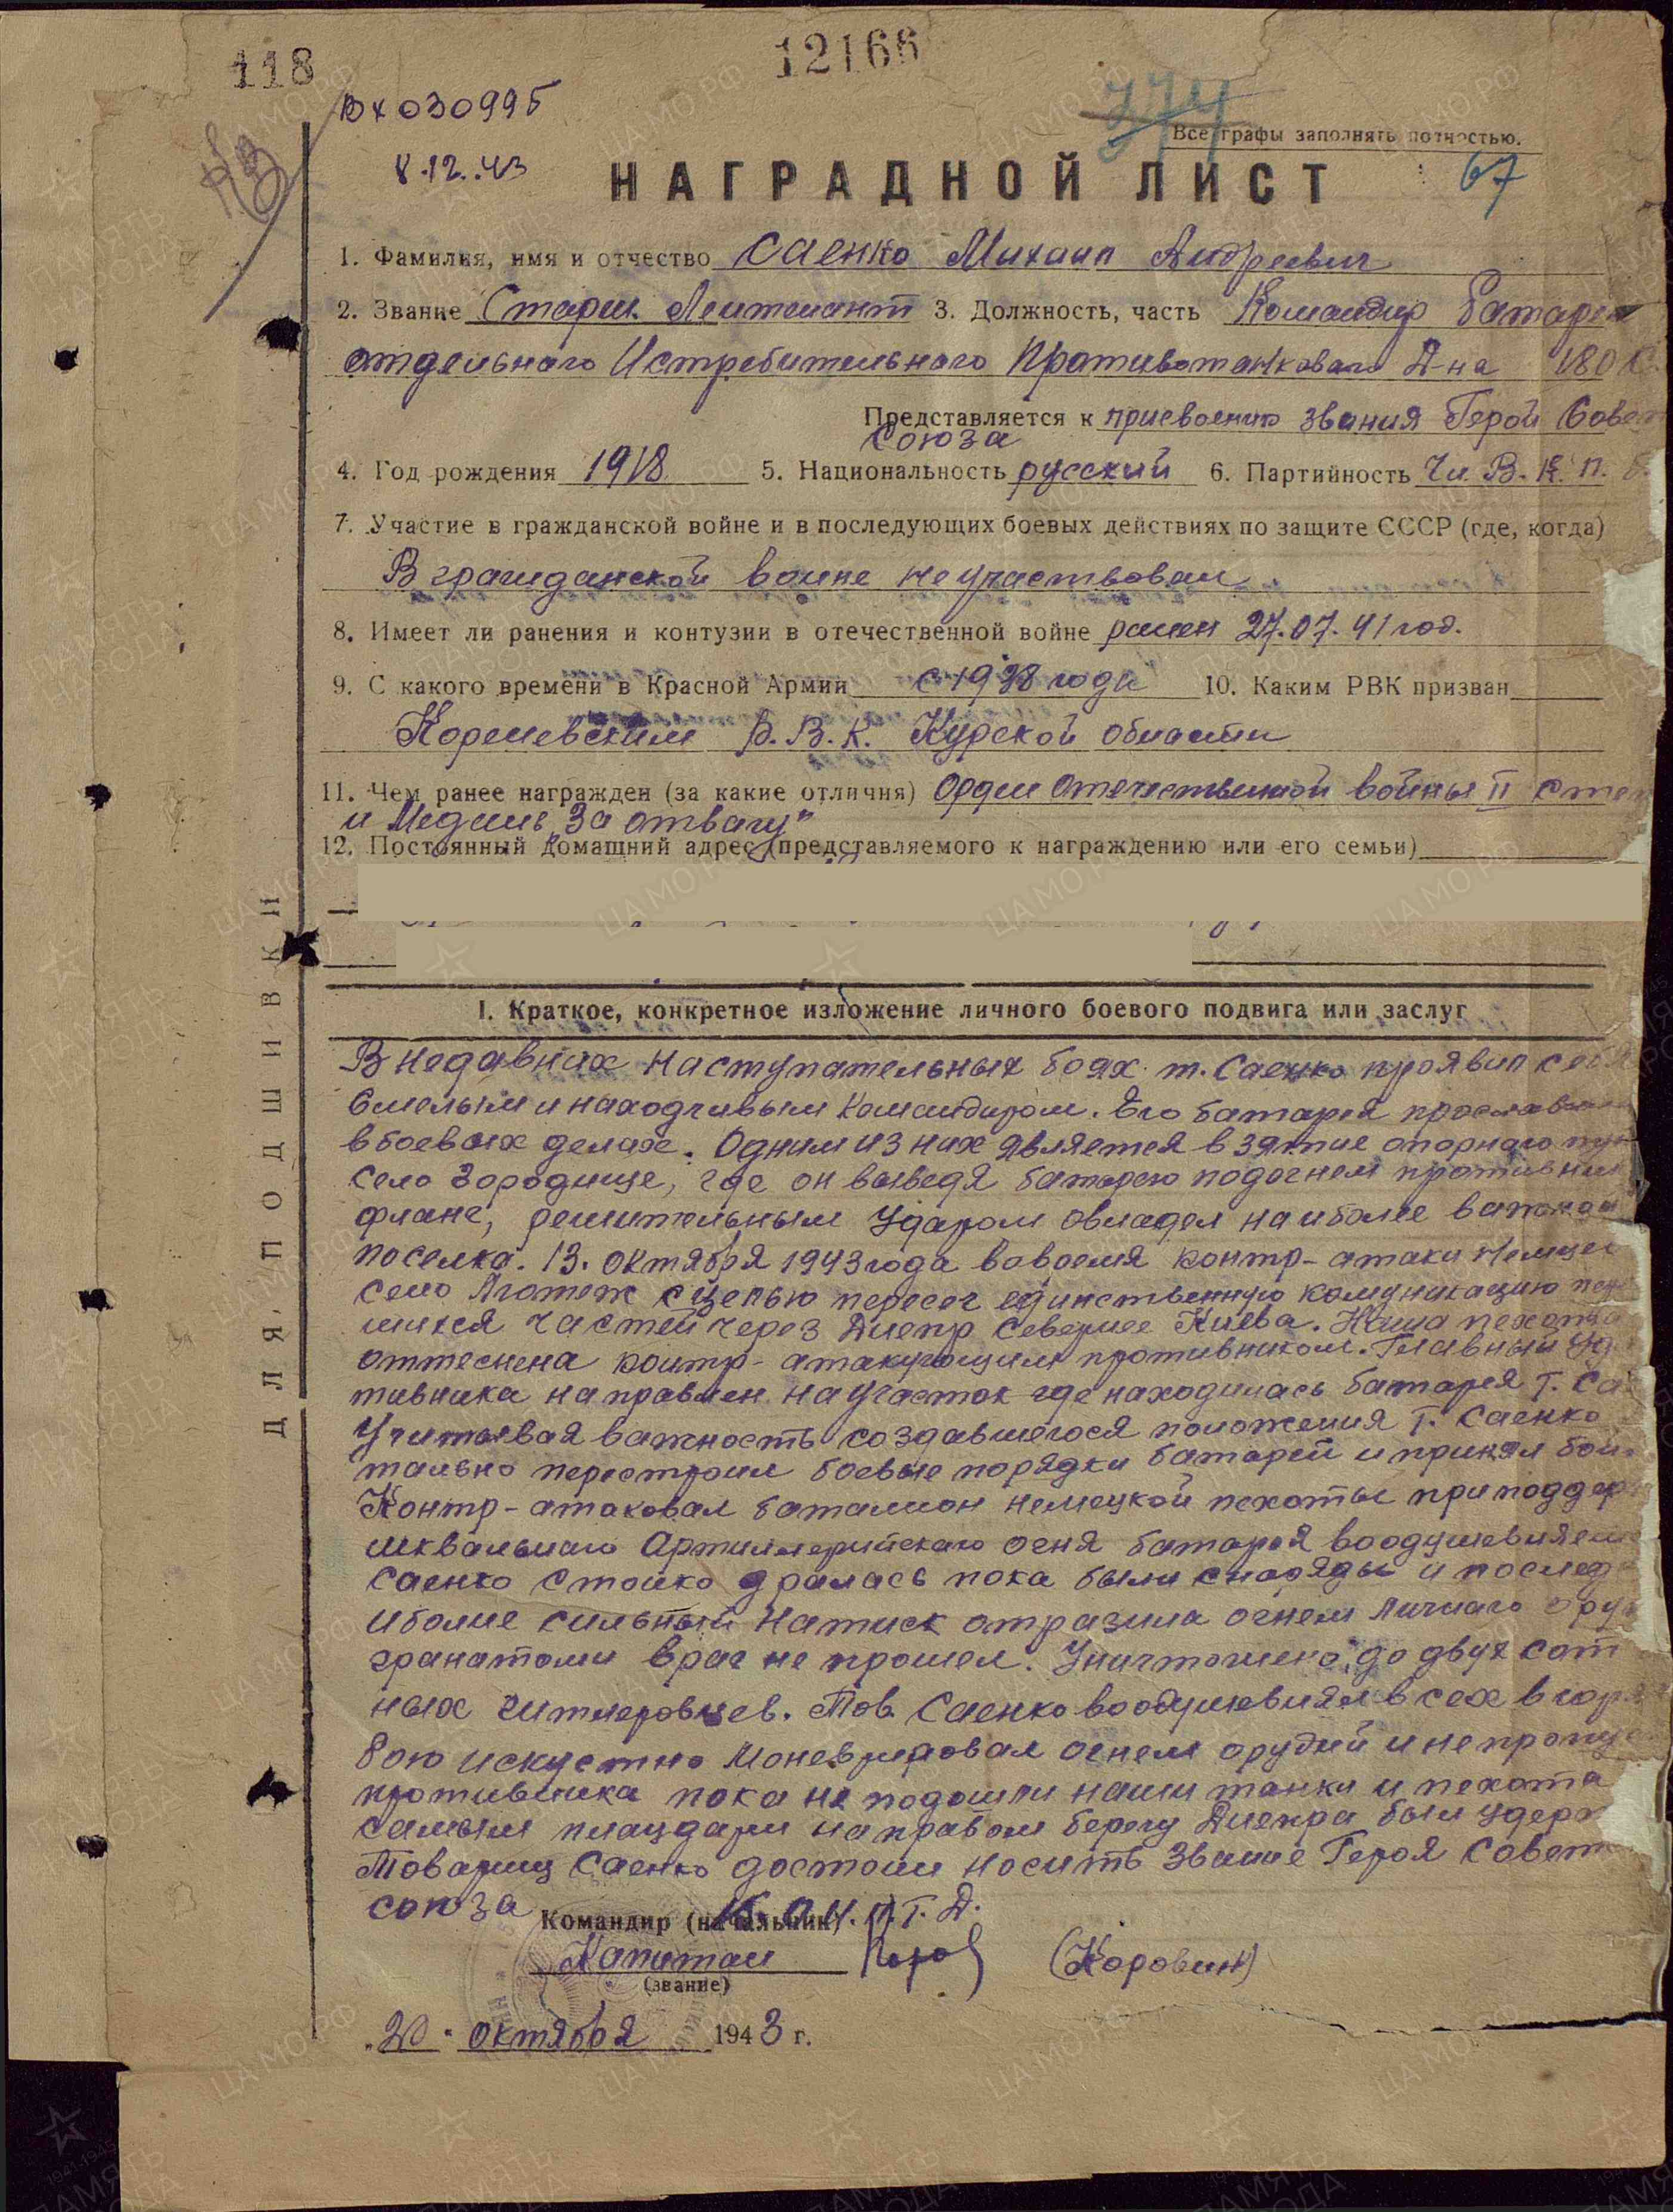 118
12166
Вх 030995
8.12.43
Все графы заполнять полностью.
67
НАГРАДНОЙ ЛИСТ
1. Фамилия, имя и отчество Саенко Михаил Андреевич
2. Звание Старш. Лейтенант 3. Должность, часть Командир батареи
отдельного Истребительного Противотанкового Д-на 180 С
Представляется к присвоению звания Герой Совет
Союза
4. Год рождения 1918 5. Национальность русский 6. Партийность Чл. В.К.П. б.
7. Участие в гражданской войне и в последующих боевых действиях по защите СССР (где, когда)
В гражданской воине не участвовал
8. Имеет ли ранения и контузии в отечественной войне ранен 27.07.41 год.
9. С какого времени в Красной Армии с 1938 года 10. Каким РВК призван
Кореневским Р.В.К. Курской области
11. Чем ранее награжден (за какие отличия) Орден Отечественной войны II степ
и Медаль „За отвагу"
12. Постоянный домашний адрес (представляемого к награждению или его семьи)
ДЛЯ ПОДШИВКИ
I. Краткое, конкретное изложение личного боевого подвига или заслуг
В недавних наступательных боях т. Саенко проявил себя
смелым и находчивым командиром. Его батарея
в боевых делах. Одним из них является взятие опорного
село Городище, где он выведя батарею под огнем
фланг, решительным ударом овладел наиболее
поселка. 13. Октября 1943 года вовремя контр-атаки немцев
село Лютеж с целью пересеч единственную комуникацию
шихся частей через Днепр Севернее Киева. Наша пехота
оттеснена контр-атакующим противником. Главный уд
тивника направлен на участок где находилась батарея т. Са
Учитывая важность создавшегося положения т. Саенко
тально перестроил боевые порядки батареи и принял бой.
Контр-атаковал баталион немецкой пехоты при поддер
шквального Артиллерийского огня батарея
Саенко стойко дралась пока были снаряды и послед
иболие сильный натиск отразила огнем личного оруж
гранатами враг не прошел. Уничтожено до двух сот
ных гитлеровцев. Тов. Саенко воодушевлял всех в
бою искустно Маневрировал огнем орудий и не пропус
противника пока не подошли наши танки и пехота
самым плацдарм на правом берегу Днепра был удерж
Товарищ Саенко достоин носить звание Героя Совет
союза
Командир (начальник) К. О.И.П.Т.Д.
Капитан (Коровин)
(звание)
„20" октября 1943 г.